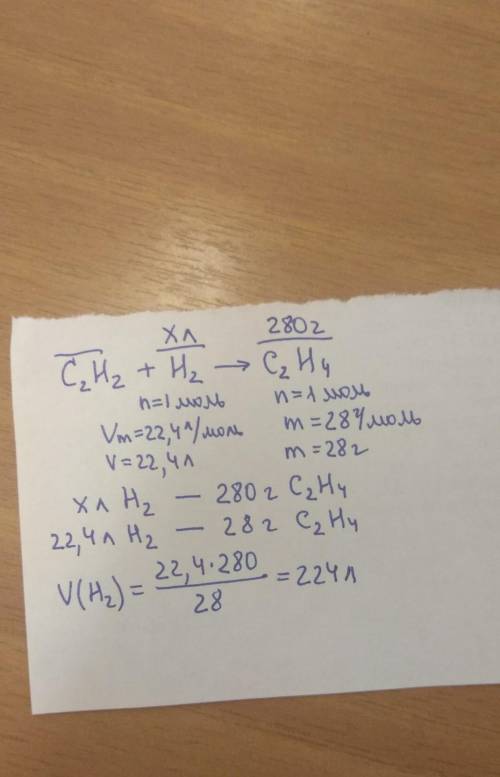 хл 280г
C₂H₂ + H₂ → C₂H₄
n=1моль n=1моль
Vm=22,4л/моль m=28г/моль
V=22,4л m=28г
хл H₂ — 280г C₂H₄
22,4л H₂ — 28г C₂H₄
V(H₂) = 22,4·280 / 28 = 224л